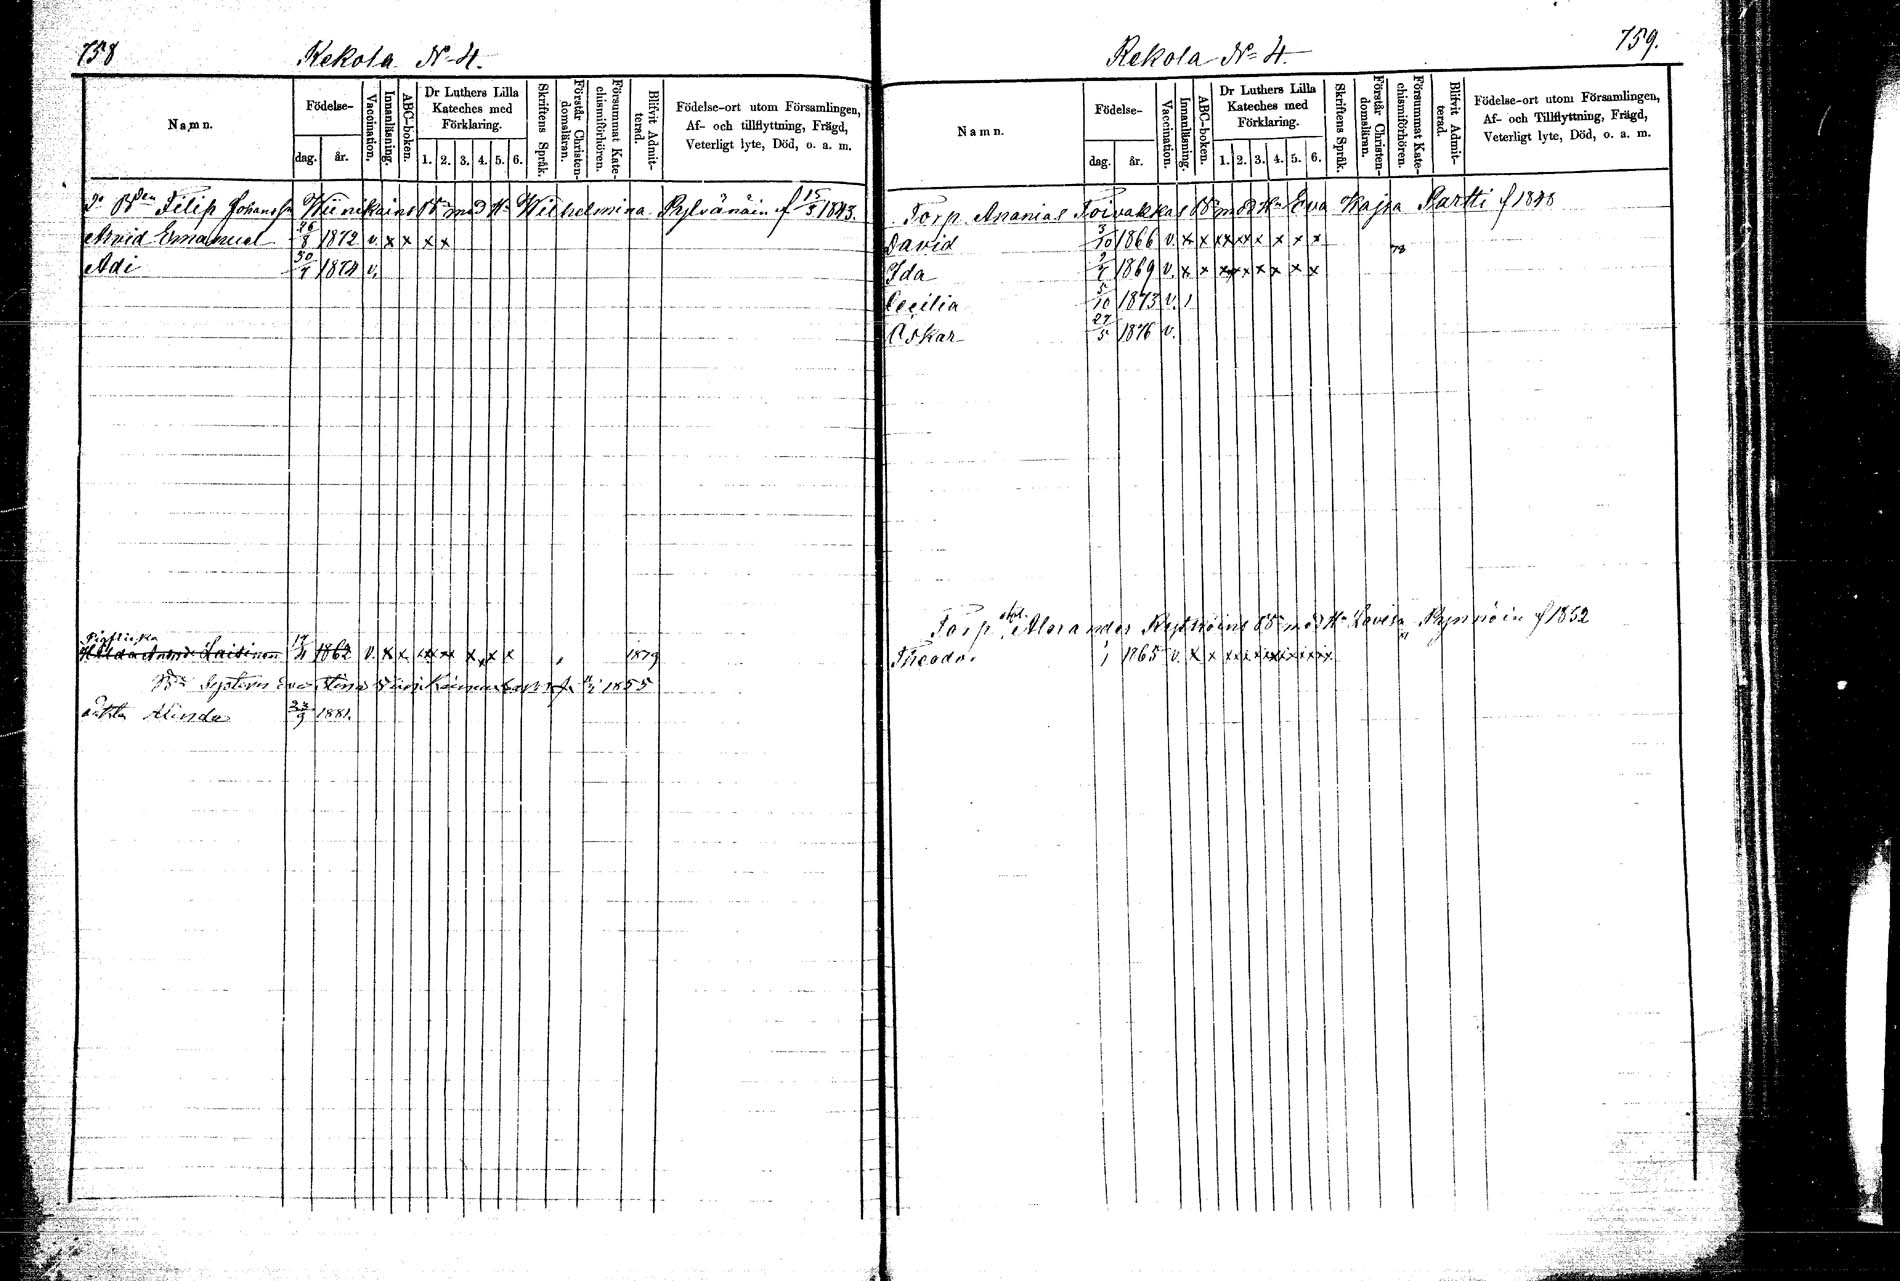 758
Rekola No 4.
Namn.
Födelse-
dag.
år.
Vaccination.
Innanläsning.
ABC-boken.
Dr Luthers Lilla
Kateches med
Förklaring.
1. 2. 3. 4. 5. 6.
Skriftens Språk.
Förstår Christen-
domsläran.
Försummat Kate-
chismiförhören.
Blifvit Admit-
terad.
Födelse-ort utom Församlingen,
Af- och tillflyttning, Frägd,
Veterligt lyte, Död, o. a. m.
Filip Johanss Wiinikains med Wilhelmina Pylvänäin f 15/3 1843.
Arvid Emanuel 26/8 1872 v. x x x x
Adi 30/7 1874 v.
Hilda Laitinen 1862 v. x x x x x x x x x 1879
Eva Stina 1855
Alinda 23/9 1881.
759.
Rekola No 4.
Namn.
Födelse-
dag.
år.
Vaccination.
Innanläsning.
ABC-boken.
Dr Luthers Lilla
Kateches med
Förklaring.
1. 2. 3. 4. 5. 6.
Skriftens Språk.
Förstår Christen-
domsläran.
Försummat Kate-
chismiförhören.
Blifvit Admit-
terad.
Födelse-ort utom Församlingen,
Af- och Tillflyttning, Frägd,
Veterligt lyte, Död, o. a. m.
Torp. Ananias Toivakkas med Hu Eva Kajsa Partti f 1848
David 3/10 1866 v. x x xx xx x x x x 78
Ida 2/7 1869 v. x x x x x x x x x
Cecilia 5/10 1873 v. 1
Oskar 27/5 1876 v.
Torp Alexander med Hu Lovisa f 1852
Theodor 1865 v. x x x x x x x x x x x